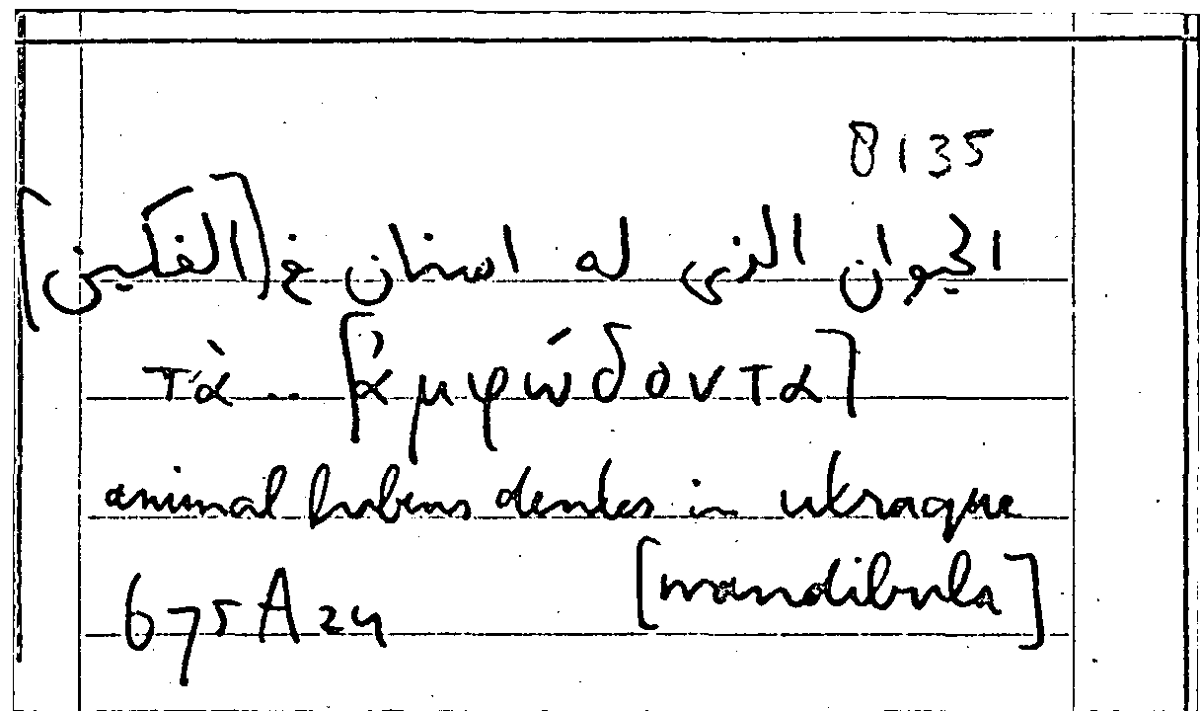 8135
الحيوان الذى له اسنان فى [الفكين]
τὰ .. [ἀμφώδοντα]
animal habens dentes in utraque
[mandibula]
675A24